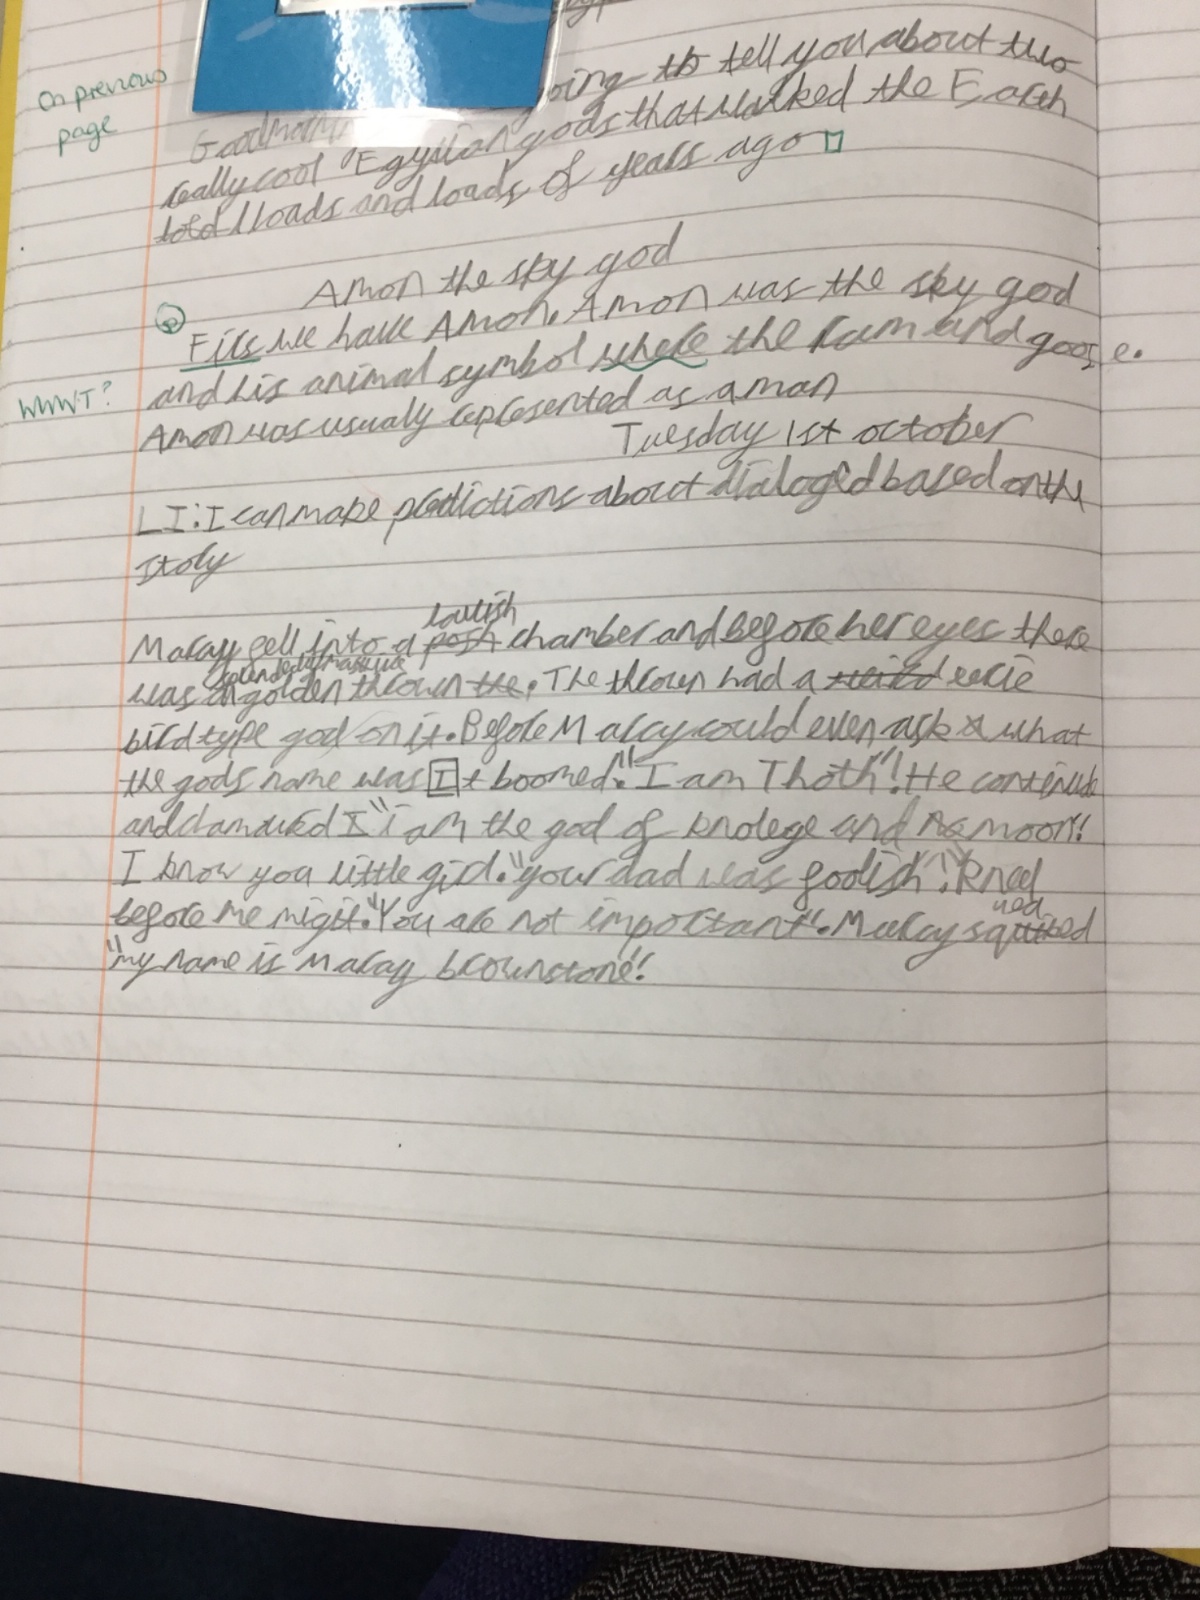 On previous
page
oing to tell you about two
really cool Egystian gods that walked the Earth
loads and loads of years ago
Amon the sky god
Firs we have Amon. Amon was the sky god
and his animal symbol where the ram and goose.
WWWT?
Amon was usualy represented as a man
Tuesday 1st october
LI: I can make predictions about dialoged based on the
story
lavish
Marcy fell into a posh chamber and before her eyes there
massive
was golden thrown the. The thrown had a weird eerie
bird type god on it. Before Marcy could even ask what
the gods name was It boomed. "I am Thoth"! He continude
and I "i am the god of knolege and moon!
I know you little girl. "your dad was foolish"! "Kneel
before me migit. "You are not important". Marcy squ
"my name is Marcy brownstone"!